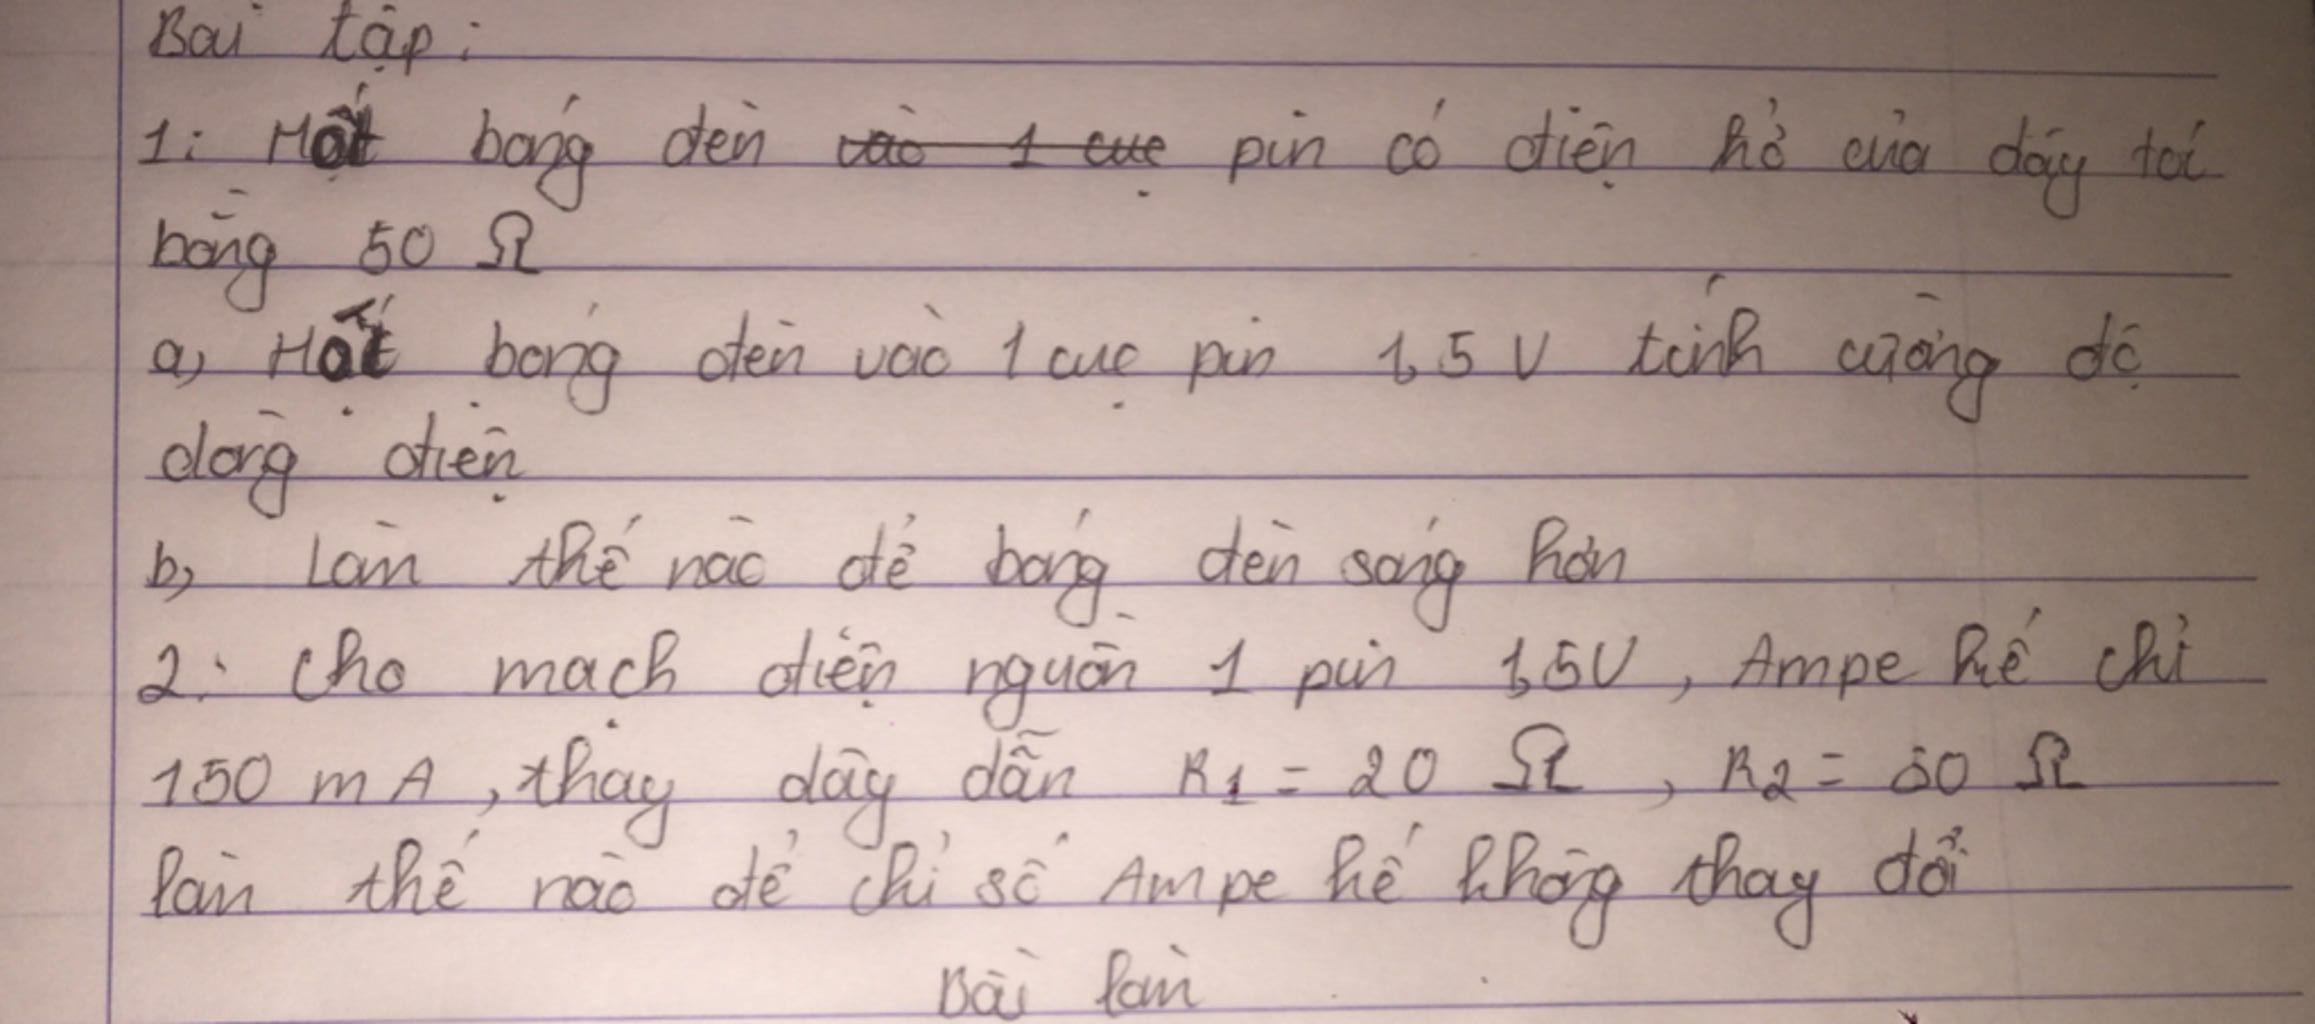 Bài tập:
1: Một bóng đèn vào 1 cục pin có điện hở của dây tới
bằng 50 Ω
a, Một bóng đèn vào 1 cục pin 1,5 V tính cường độ
dòng điện
b, Làm thế nào để bóng đèn sáng hơn
2: Cho mạch điện nguồn 1 pin 1,5V, Ampe kế chỉ
150 mA, thay dây dẫn R1 = 20 Ω, R2 = 50 Ω
làm thế nào để chỉ số Ampe kế không thay đổi
Bài làm